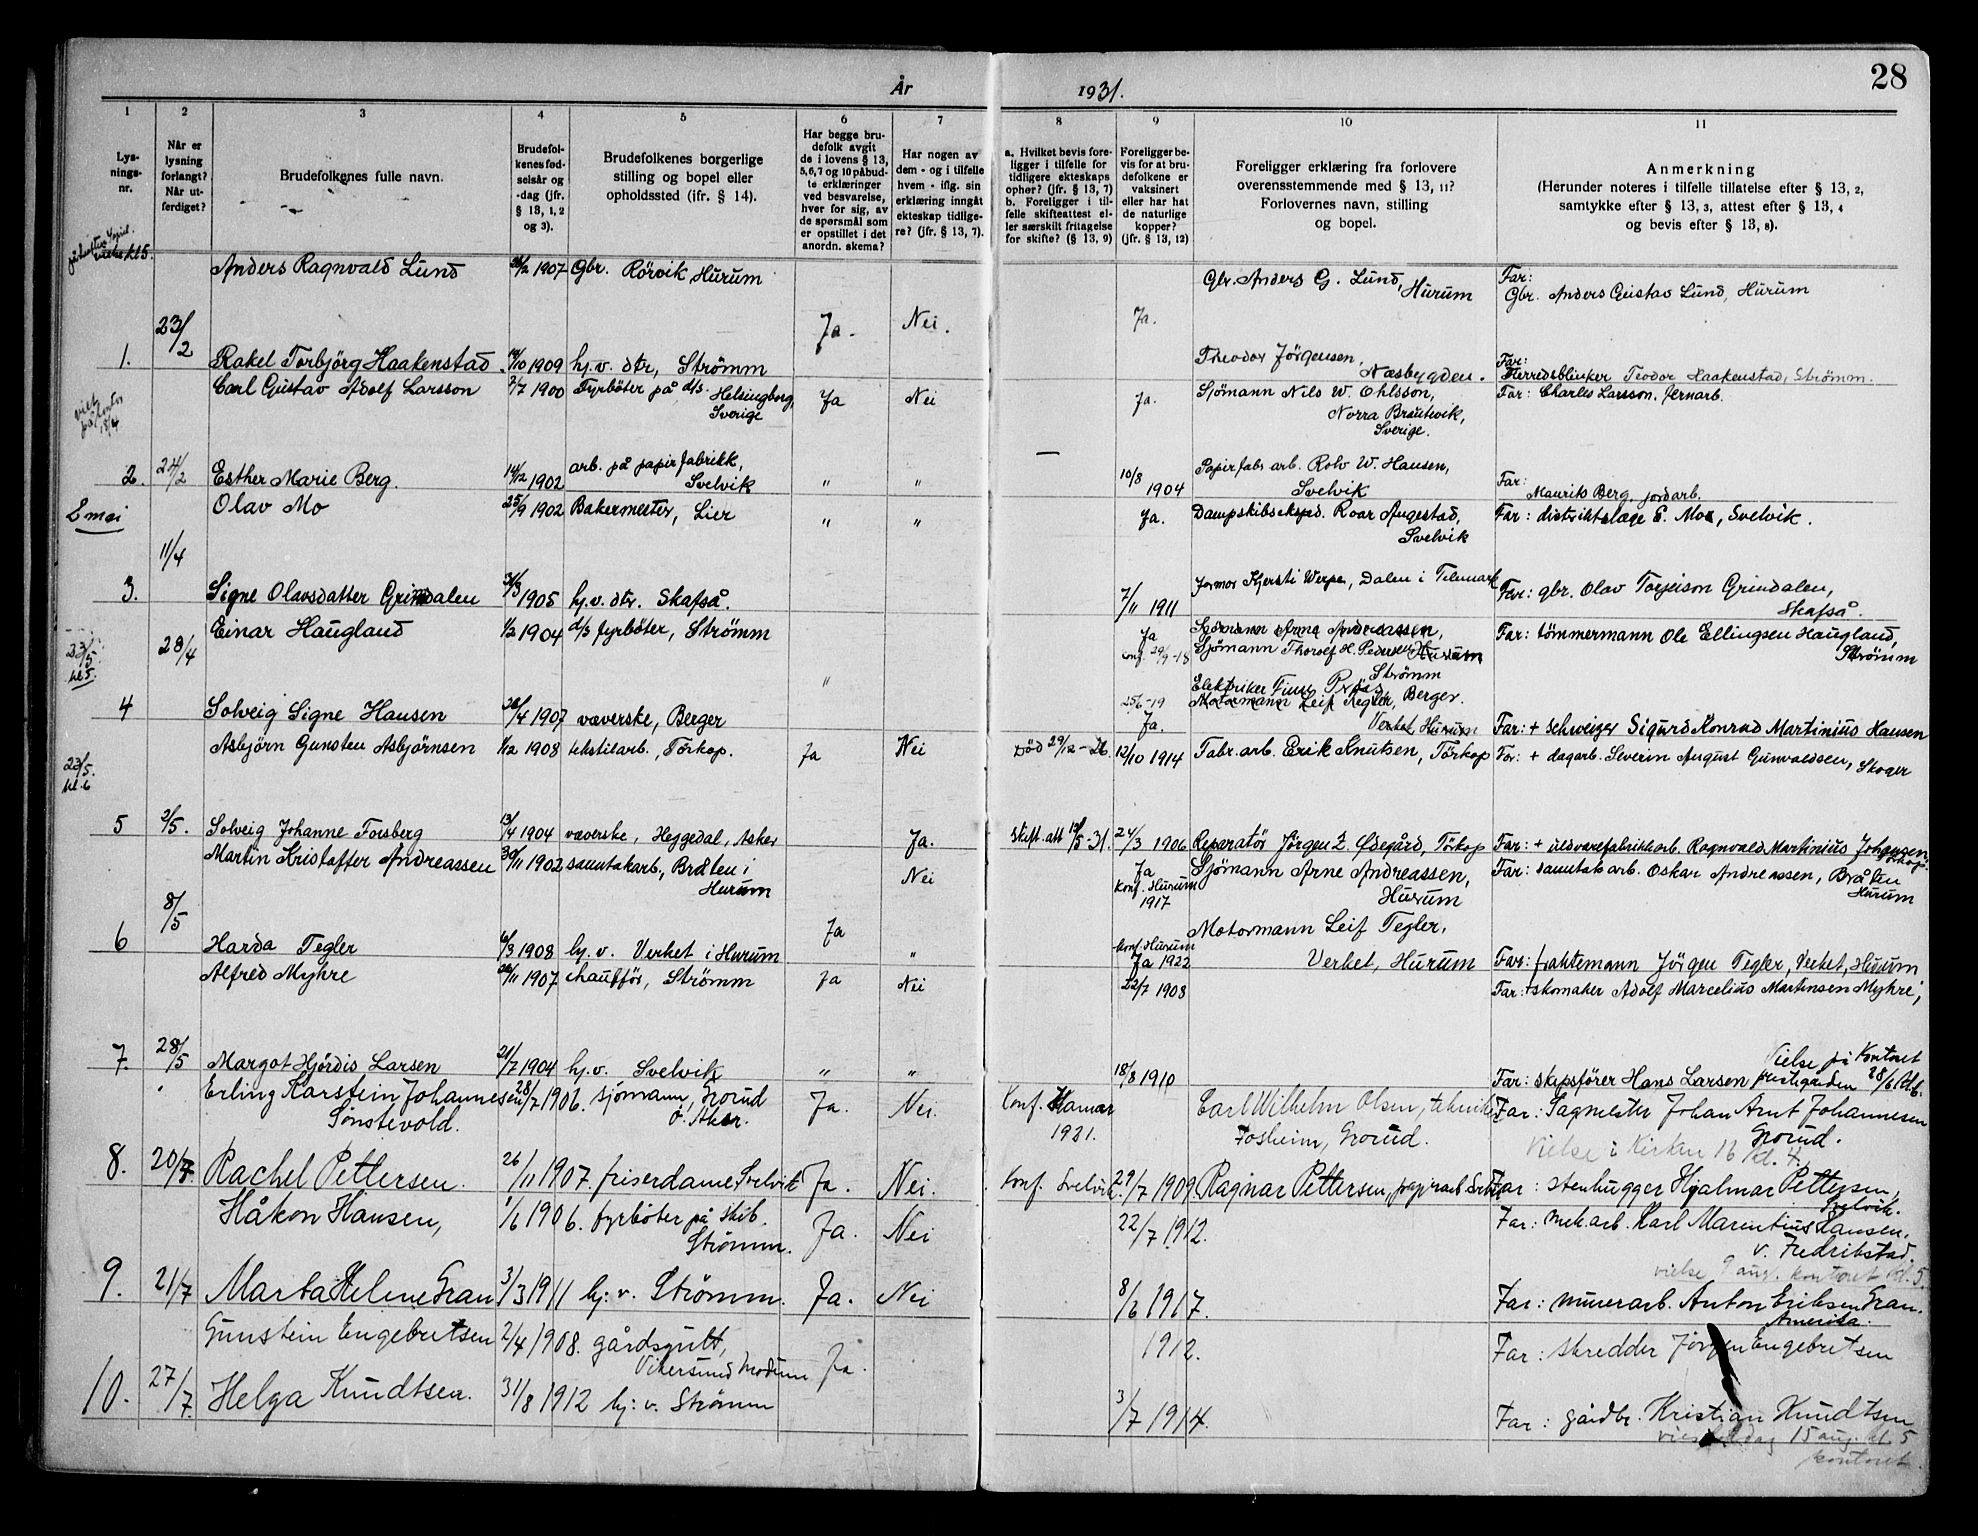 28
År 1931.
1 2 3 4 5 6 7 8 9 10 11
Lys-
nings-
nr.
Når er
lysning
forlangt?
Når ut-
ferdiget?
Brudefolkenes fulle navn.
Brudefol-
kenes fød-
selsår og
-dag (jfr.
§ 13, 1, 2
og 3).
Brudefolkenes borgerlige
stilling og bopel eller
opholdssted (ifr. § 14).
Har begge bru-
defolk avgit
de i lovens § 13,
5, 6, 7 og 10 påbud-
te erklæringer
ved besvarelse,
hver for sig, av
de spørsmål som
er opstillet i det
anordn. skema?
Har nogen av
dem - og i tilfelle
hvem - iflg. sin
erklæring inngåt
ekteskap tidlige-
re? (jfr. § 13, 7).
a. Hvilket bevis fore-
ligger i tilfelle for
tidligere ekteskaps
opher? (jfr. § 13, 7)
b. Foreligger i til-
felle skifteattest el-
ler særskilt fritagelse
for skifte? (§ 13, 9)
Foreligger be-
vis for at bru-
defolkene er
vaksinert
eller har hat
de naturlige
kopper?
(jfr. § 13, 12)
Foreligger erklæring fra forlovere
overensstemmende med § 13, 11?
Forlovernes navn, stilling
og bopel.
Anmerkning
(Herunder noteres i tilfelle tillatelse efter § 13, 2,
samtykke efter § 13, 3, attest efter § 13, 4
og bevis efter § 13, 8).
kl 5.
Anders Ragnvald Lund 1907 Gbr. Rörvik, Hurum Gbr. Anders G. Lund, Hurum Far:
Gbr. Anders Gustav Lund, Hurum
23/2 Ja. Nei. Ja.
1. Rakel Torbjörg Haakenstad 19/10 1909 hj.v. dtr, Strömm Theodor Jörgensen, Næsbygden. Far:
Herredsblinker Teodor Haakenstad, Strömm.
Carl Gustav Adolf Larsson 2/7 1900 Fyrböter på d/s Helsingborg, Sverige Ja Nei Ja. Sjömann Nils W. Ohlsson, Far: Charles Larsson, jernarb.
18/4
Norra Sverige.
2. 24/2 Esther Marie Berg. 14/12 1902 arb. på papirfabrikk, Svelvik " " — 10/8 1904 Papirfabr. arb. Rolv W. Hansen, Svelvik Far:
Mauritz Berg jordarb.
2 mai
Olav Mo 25/9 1902 Bakermester, Lier " " Ja. Dampskibseksped. Roar Angestad, Svelvik Far: distriktslæge E. Moe, Svelvik.
11/4
3. Signe Olavsdatter Grindalen 31/3 1905 hj.v. dtr. Skafså. 7/11 1911 Jormor Kjersti Werpe, Dalen i Telemark Far: gbr. Olav Torjeison Grindalen, Skafså.
23/5 kl 5. 28/4
Einar Haugland 1/2 1904 d/s fyrböter, Strömm Ja konf. 29/9-18 Sjömann Arne Andreassen,
Sjömann Thorolf H. Pedersen Hurum Strömm Far: tömmermann Ole Ellingsen Haugland, Strömm
"
4 Solveig Signe Hansen 26/4 1907 væverske, Berger 25/6-19 Ja. Elektriker Berger.
Motormann Leif Tegler, Verket Hurum Far: + schweizer Sigurd Konrad Martinius Hansen
23/5. kl. 6
Asbjörn Gunsten Asbjörnsen 1/12 1908 tekstilarb., Törkop. Ja Nei Död 29/12-26. 12/10 1914 Fabr.arb. Erik Knutsen, Törkop Far: + dagarb. Severin August Gunvaldsen, Skoger
5 2/5. Solveig Johanne Forsberg 13/4 1904 væverske, Heggedal, Asker Ja. Skift. att 12/5-31. 24/3 1906 Reparatör Jörgen L Ødegård, Törkop Far: + uldvarefabrikkarb. Ragnvald Martinius Johansen, Törkop.
Martin Kristoffer Andreassen 30/11 1902 sauntakarb., Bråten i Hurum Nei Ja konf. Hurum 1917 Sjömann Arne Andreassen, Hurum Far: sauntakarb. Oskar Andreassen, Bråten Hurum
8/5 Ja
6 Harda Tegler 6/3 1908 hj. v. Verket i Hurum " konf. Hurum Ja 1922 Motormann Leif Tegler, Verket, Hurum Far: fraktemann Jörgen Tegler, Verket, Hurum
Alfred Myhre 1907 chauffør, Strömm Ja Nei 22/7 1908 Far: + skomaker Adolf Marcelius Martinsen Myhre,
7. 28/5 Margot Hjördis Larsen 21/7 1904 hj.v. Svelvik " " 18/8 1910 Far: skipsförer Hans Larsen Vielse på Kontoret prestgården 28/6 kl 6.
Erling Karstein Johannesen Sønstevold. 28/7 1906. sjömann, Grorud Ö. Aker. Ja. Nei. Konf. Hamar 1921. Carl Wilhelm Olsen, tekniker Fosheim, Grorud. Far: Sagmester Johan Arnt Johannesen Grorud.
Vielse i Kirken 16 kl. 4.
8. 20/7 Rachel Pettersen. 26/11 1907. friserdame Svelvik Ja. Nei. Konf. Svelvik. 29/7 1909 Ragnar Pettersen, papirarb. Far: stenhugger Hjalmar Pettersen, Svelvik.
Håkon Hansen, 1/6 1906. fyrböter på skib. Strömm. Ja. Nei 22/7 1912. Far: mek.arb. Karl Marentius Hansen. v. Fredrikstad.
vielse 9 aug. kontoret kl. 5.
9. 21/7 Marta Helene Gran 3/3 1911 hj. v. Strömm. Ja. Nei 8/6 1917. Far: murerarb. Anton Eriksen Gran. Amerika.
Gunstein Engebretsen 2/4 1908. gårdsgutt, Vikersund Modum Ja. 1912. Far: skredder Jörgen Engebretsen
10. 27/7. Helga Knudtsen. 31/8 1912 hj. v. Strömm 3/7 1914. Far: gårdbr. Kristian Knudtsen
15 aug. kl. 5
kontoret.